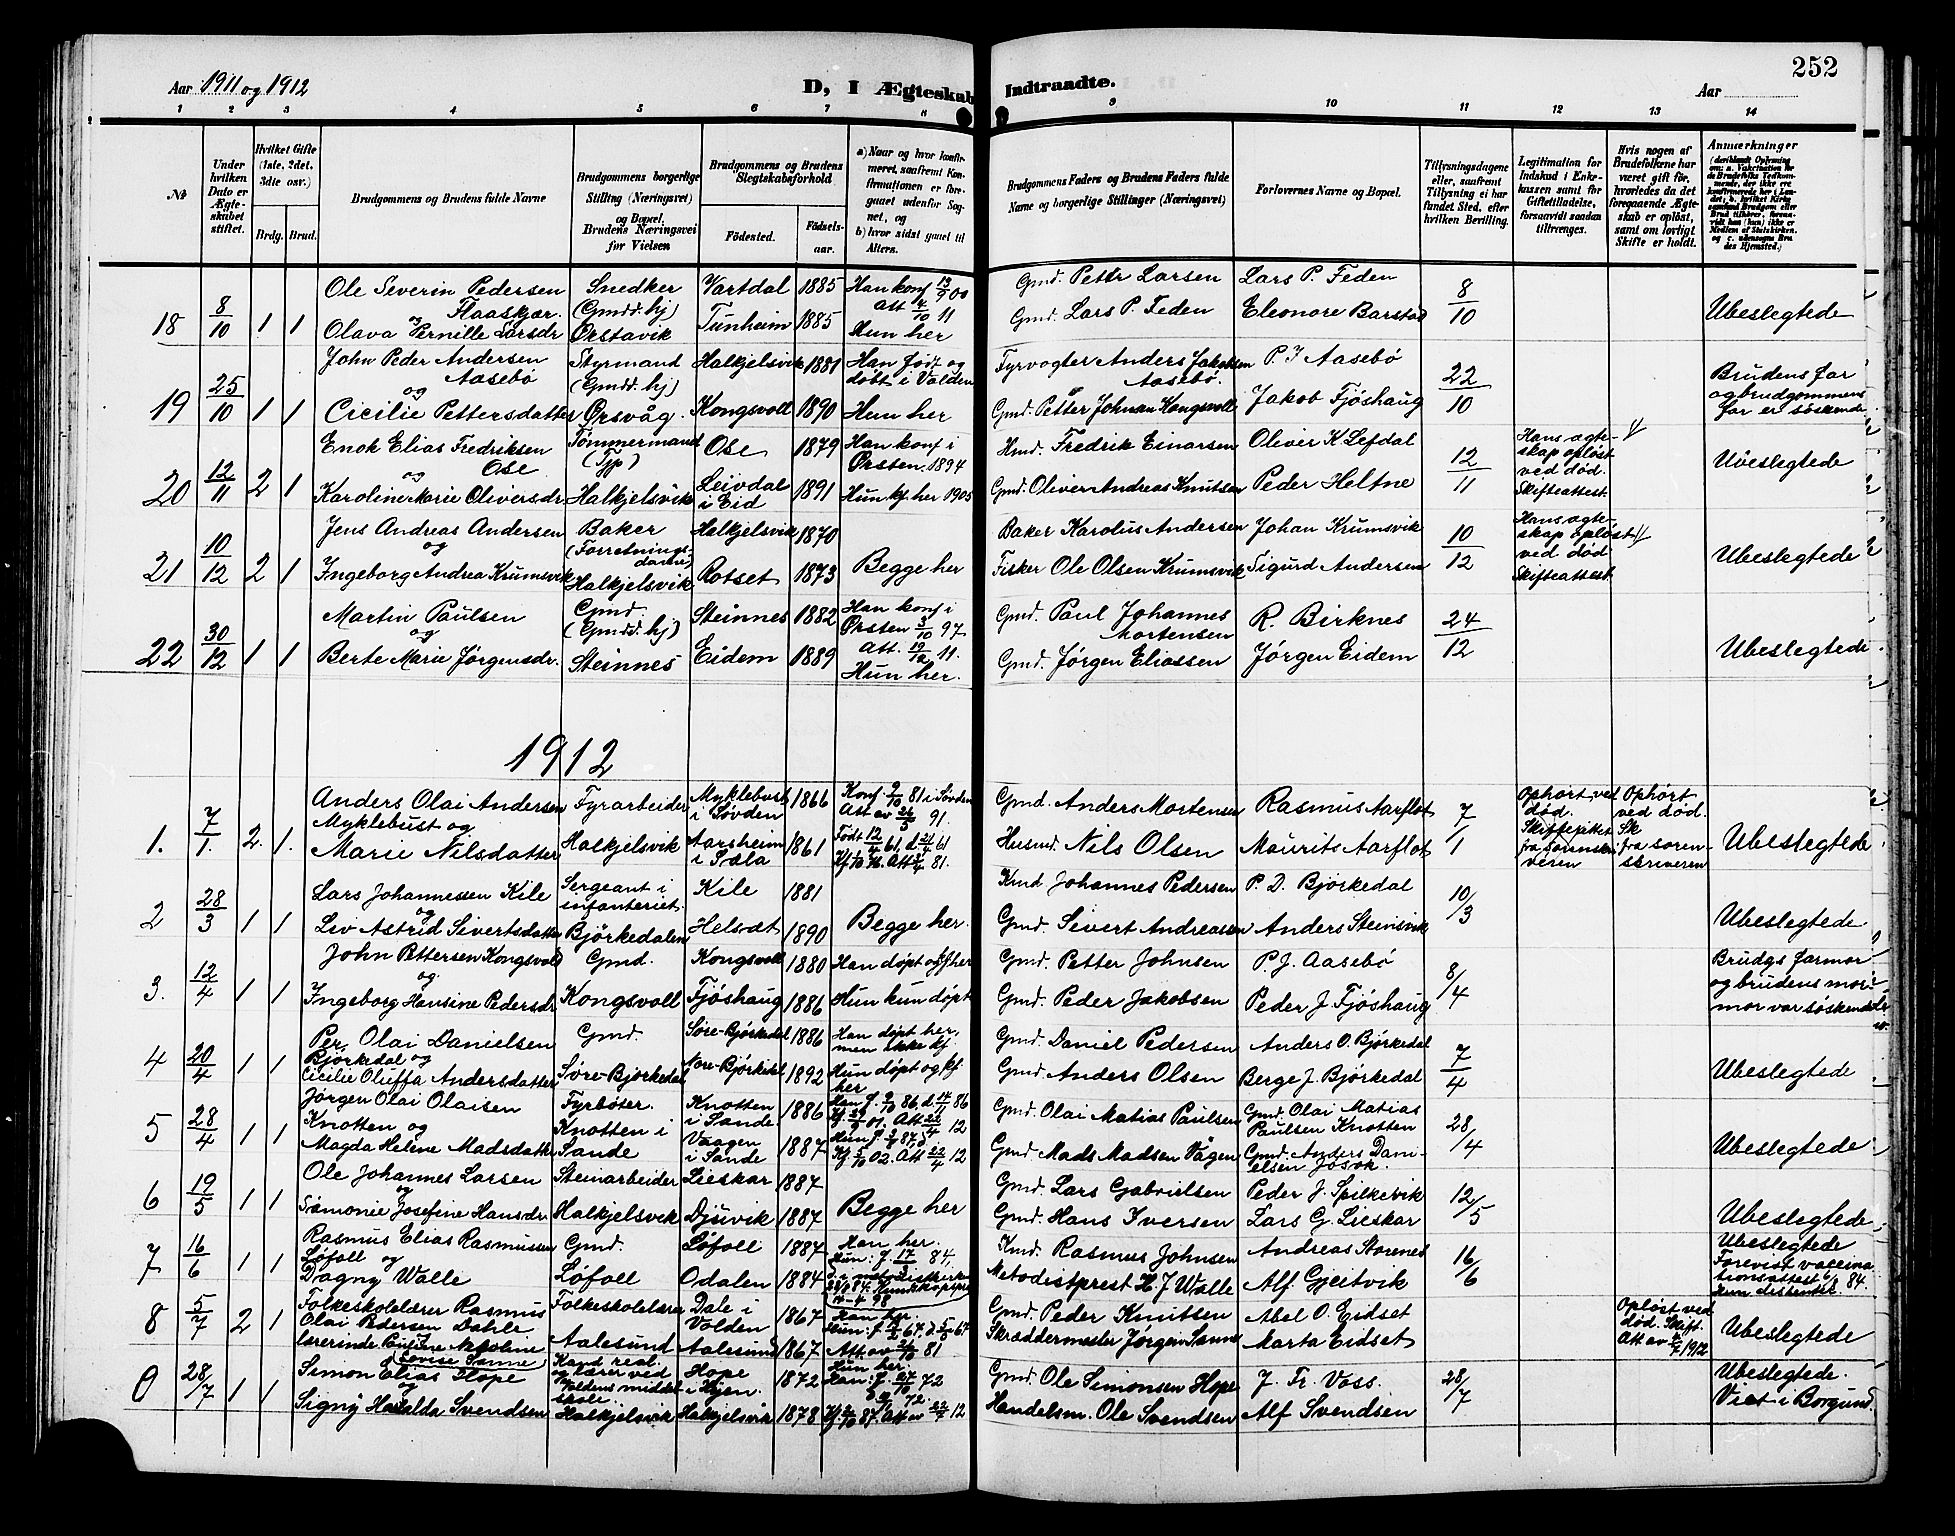 252
Aar 1911 og 1912
D, I Ægteskab Indtraadte.
Aar
1 2 3 4 5 6 7 8 9 10 11 12 13 14
№
Under hvilken Dato er Ægteskabet stiftet.
Hvilket Gifte (1ste, 2det, 3die osv.)
Brdg. Brud.
Brudgommens og Brudens fulde Navne
Brudgommens borgerlige Stilling (Næringsvei) og Bopæl, Brudens Næringsvei før Vielsen
Brudgommens og Brudens Slegtskabsforhold
Fødested.
Fødselsaar.
a) Naar og hvor konfirmeret, saafremt Konfirmationen er foregaaet udenfor Sognet, og
b) hvor sidst gaaet til Alters.
Brudgommens Faders og Brudens Faders fulde Navne og borgerlige Stillinger (Næringsvei)
Forlovernes Navne og Bopæl.
Tillysningsdagene eller, saafremt Tillysning ei har fundet Sted, efter hvilken Bevilling.
Legitimation for Indskud i Enkekassen samt for Giftetilladelse, forsaavidt saadan tiltrænges.
Hvis nogen af Brudefolkene har været gift før, hvorledes da det foregaaende Ægteskab er opløst, samt om lovligt Skifte er holdt.
Anmerkninger
18 8/10 1 1 Ole Severin Pedersen Flaaskjær og Olava Pernille Larsdr Snedker (Gmdd. hj) Ørstavik Vartdal 1885 Tunheim 1885 Han konf 13/9 00 Att 4/10 11 Hun her Gmd. Petter Larsen Gmd. Lars P. Feden Lars P. Feden Eleonore Barstad 8/10 Ubeslegtede
19 25/10 1 1 John Peder Andersen Aasebö og Cicilie Pettersdatter Styrmand (Gmdd. hj) Ørsvåg. Halkjelsvik 1881 Kongsvoll 1890 Han født og døbt i Volden Hun her Fyrvogter Anders Jakobsen Aasebö. Gmd. Petter Johnan Kongsvoll P. J Aasebö Jakob Fjöshaug 22/10 Brudens far og brudgommens far er söskende
20 12/11 2 1 Enok Elias Fredriksen Ose og Karoline Marie Oliversdr Tømmermand (Tjp) Halkjelsvik Ose 1879 Leivdal i Eid 1891 Han konf i Ørsten 1894 Hun kf her 1905 Hmd. Fredrik Einarsen Gmd. Oliver Andreas Knutsen Oliver K Lefdal Peder Heltne 12/11 Hans ægteskap opløst ved død. Skifteattest Ubeslegtede
21 10/12 2 1 Jens Andreas Andersen og Ingeborg Andrea Krumsvik Baker (Forretningsdanne) Halkjelsvik Halkjelsvik 1870 Rotset 1873 Begge her Baker Karolus Andersen Fisker Ole Olsen Krumsvik Johan Krumsvik Sigurd Andersen 10/12 Hans ægteskap opløst ved død Skifteattest Ubeslegtede
22 30/12 1 1 Martin Paulsen og Berte Marie Jørgensdr. Gmd. (Gmdd. hj) Steinnes Steinnes 1882 Eidem 1889 Han konf i Ørsten 3/10 97 Att. 19/12 11. Hun her. Gmd. Paul Johannes Mortensen Gmd. Jørgen Eliassen R. Birknes Jørgen Eidem 24/12 Ubeslegtede
1912
1. 7/1. 2. 1. Anders Olai Andersen Myklebust og Marie Nilsdatter Fyrarbeider Halkjelsvik Myklebust i Søvden 1866 Aarsheim i Sæla 1861 Konf. 9/10 81 i Søvden Att av 26/3 91. Født 12/4 61, d. 21/4 61 Gmd. Anders Mortensen Husmd. Nils Olsen Rasmus Aarflot Maurits Aarflot 7/1 Ophørt ved død. Skifteattest fra sorenskriveren Ophørt ved død. Sk fra sorenskriveren Ubeslegtede
2 28/3 1 1 Lars Johannessen Kile og Liv Astrid Sivertsdatter Sergeant i infanteriet. Bjørkedalen Kile 1881 Helset 1890 Begge her. Kmd Johannes Pedersen Gmd. Sivert Andreassen P. D. Bjørkedal Anders Steinsvik 10/3 Ubeslegtede
3. 12/4 1 1 John Pettersen Kongsvold og Ingeborg Hansine Pedersdr Gmd. Kongsvoll Kongsvoll 1880 Fjøshaug 1886 Han døpt og kf her Hun kun døpt Gmd. Petter Johnsen Gmd. Peder Jakobsen P. J. Aasebö Peder J. Fjøshaug 8/4 Brudgs farmor og brudens mormor var søskende
4 20/4 1 1 Per Olai Danielsen Bjørkedal og Cicilie Oluffa Andersdatter Gmd. Søre-Bjørkedal Søre-Bjørkedal 1886 Søre-Bjørkedal 1892 Han døpt her, men ikke kf. Hun døpt og kf. her Gmd. Daniel Pedersen Gmd. Anders Olsen Anders O. Bjørkedal Berge J. Bjørkedal 7/4 Ubeslegtede
5 28/4 1 1 Jørgen Olai Olaisen Knotten og Magda Helene Madsdatter Fyrbøter. Knotten i Sande Knotten i Sande 1886 Vaagen i Sande 1887 Han f. 9/10 86. d. 14/11 86 Att 22/4 12 Kf. 5/10 02. Att 22/4 12 Gmd. Olai Matias Paulsen Gmd. Mads Madsen Vågen Gmd. Olai Matias Paulsen Knotten Gmd. Anders Danielsen Jøsok. 28/4 Ubeslegtede
6 19/5 1 1 Ole Johannes Larsen og Sømonie Josefine Hansdr Steinarbeider Halkjelsvik Lieskar 1887 Djuvik 1887 Begge her Gmd. Lars Gabrielsen Gmd. Hans Iversen Peder J. Spilkevik Lars G. Lieskar 12/5 Ubeslegtede
7 16/6 1 1 Rasmus Elias Rasmussen Løfoll og Dagny Walle Gmd. Løfoll Løfoll 1887 Odalen 1884 Han her. Hun: f. 17/2 84, Kmd. Rasmus Johnsen Metodistprest H. J Walle Andreas Storenes Alf Gjeitvik 16/6 Ubeslegtede Forevist vaccinationsattest Hun dissenter.
8 5/7 2 1 Folkeskolelærer Rasmus Olai Pedersen Dahle lærerinde Pauline Nikoline Lovise Sanne Folkeskolelærer Aalesund Dale i Volden 1867 Aalesund 1867 Han her Gmd. Peder Knutsen Skræddermester Jørgen Sanne Abel O. Eidset Marta Eidset Opløst ved død. Skift. Att av 4/7 1912 Ubeslegtede
28/7 1 1 Simon Elias Hope og Signy Hamalda Svendsen Kand real. og lærer ved Voldens middelskole Halkjelsvik Hope i Hyen. 1872 Halkjelsvik 1878 Hun her. Han: f. 27/10 72 Gmd. Ole Simonsen Hope Handelsm. Ole Svendsen J. Fr. Voss. Alf Svendsen 28/7 Ubeslegtede. Viet i Borgund.